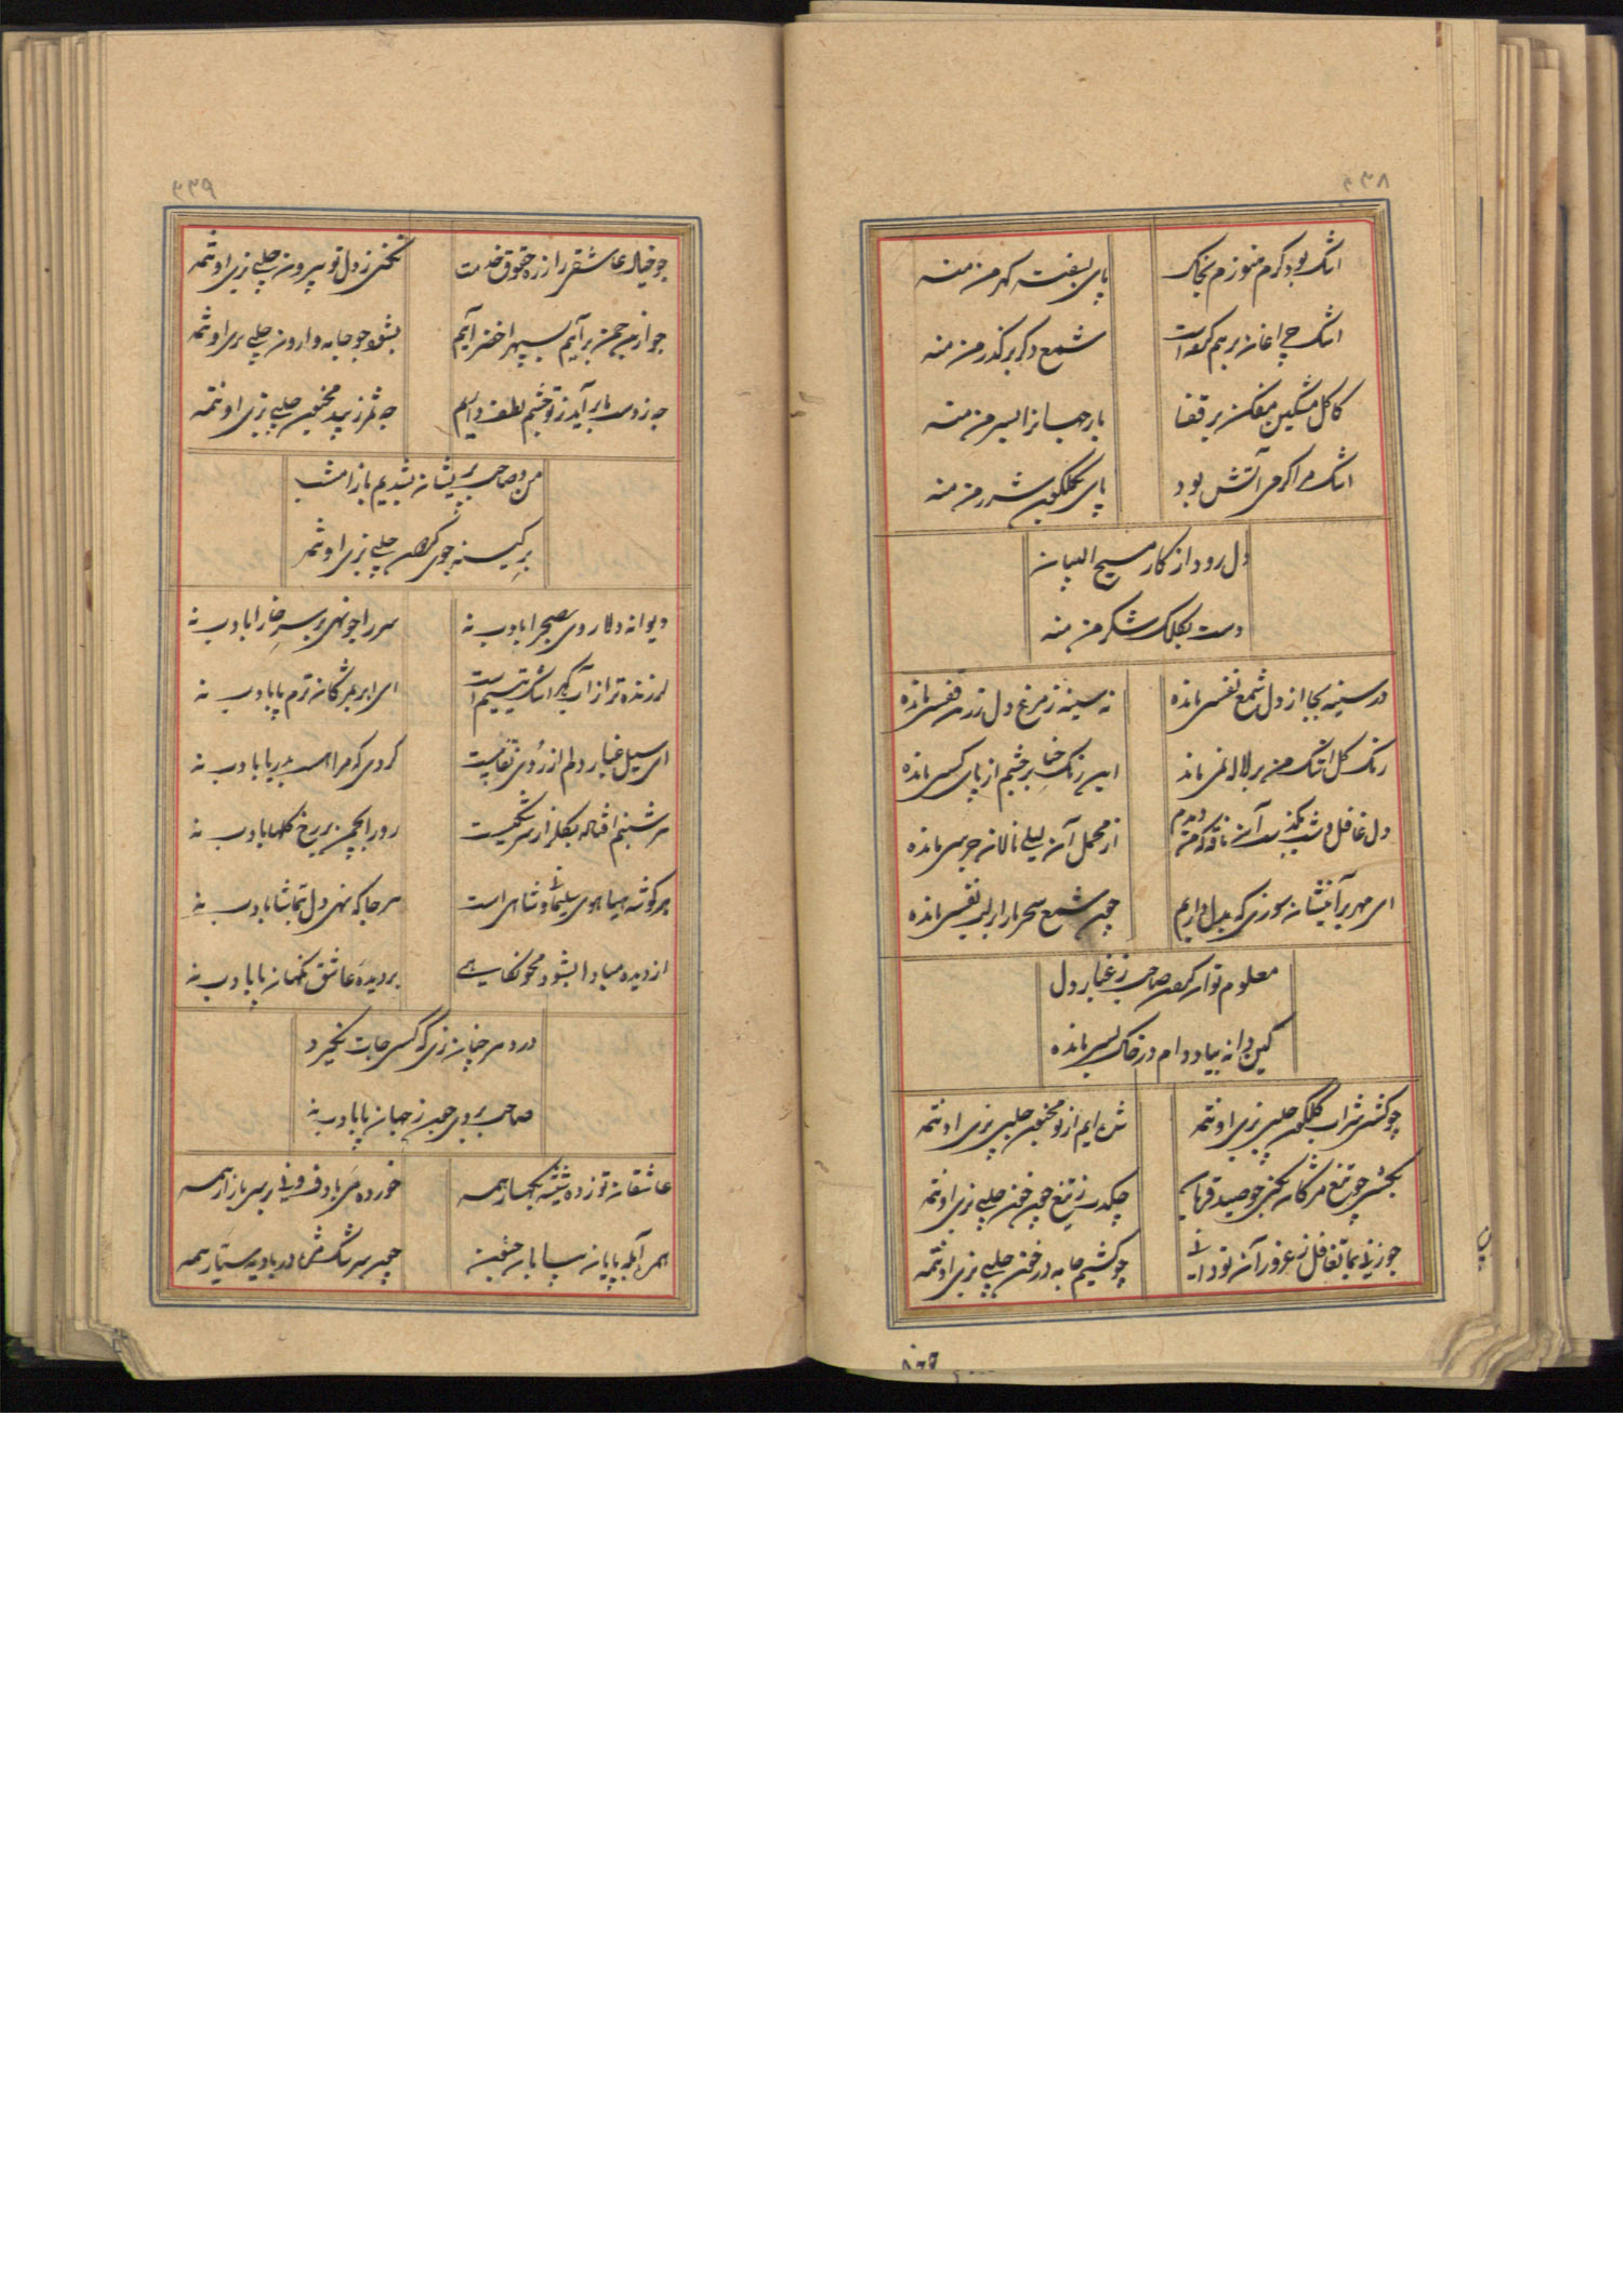 ۳۳۸
اشک بود گرم هنوزم بخاک
پای بفت گهر من منه
اشک چراغان برهم کرده است
شمع دگر بر گذر من منه
کاکل مشکین مفکن بر قفا
بار جهانرا بسر من منه
اشک مرا گرمی آتش بود
پای بگلگون شرر من منه
دل رود از کار مسیح البیان
دست بکلک شکر من منه
در سینه بجا از دل شمع نفسی مانده
نه سینه ز مرغ دل زرین قفسی مانده
رنگ گل اشک من بر لاله نمی ماند
این رنگ حنا بر چشم از پای کسی مانده
دل غافل و شب بگذشت آن ناقه که من دیدم
از محمل آن لیلی نالان جرسی مانده
ای مهر بر آتش‌ان سوزی که بدل داریم
چون شمع سحر ما را بر لب نفسی مانده
معلوم توان کردن صاحب ز غبار دل
کین دانه بیاد دام در خاک بسی مانده
چو کشی شراب گلگون چلبی بزی اوتمه
شده ایم از تو مخزون چلبی بزی اوتمه
بکشی چو تیغ مژگان بکنی چو صید قربان
چکدت ز تیغ چون خون چلبی بزی اوتمه
چو کشیم جامه در خون چلبی بزی اوتمه
۳۳۹
چو خیال عاشقی را ز ره حقوق خدمت
نکنی ز دل تو بیرون چلبی بزی اوتمه
چو از این چمن برآیم بسپهر اخضر آیم
بشو چو جامه وارون چلبی بزی اوتمه
چه ز دست ما برآید ز تو چشم لطف داریم
چه ثمر ز بید مجنون چلبی بزی اوتمه
من و صاحب پریشان شدیم باز امشب
چلبی بزی اوتمه
دیوانه دلا روی بصحرا بادب نه
سر را چو نهی بر سر خارا بادب نه
لرزنده تر از آب گهر اشک یتیم است
ای ابر بمژگان ترم پا بادب نه
ای سیل غبار دلم از روی نقابیست
گردی که مرا هست بدریا بادب نه
هر شبنم افتاده بگلزار سرشکیست
رو را بچمن بر رخ گلها بادب نه
هر گوشه هیاهوی سلیمان و شاهی است
هر جا که نهی دل بتماشا بادب نه
از دیده مبادا بشود محو نگاهی
بر دیده عاشق نگهان پا بادب نه
در دهر چنان زی که کسی جات نگیرد
صاحب بروی چون ز جهان پا بادب نه
عاشقان تو زده شیشه بکهسار همه
خورده می با دف و نی بر سر بازار همه
همره آبله پایان بیابان جنون
چون سرشک مژه در بادیه سیار همه